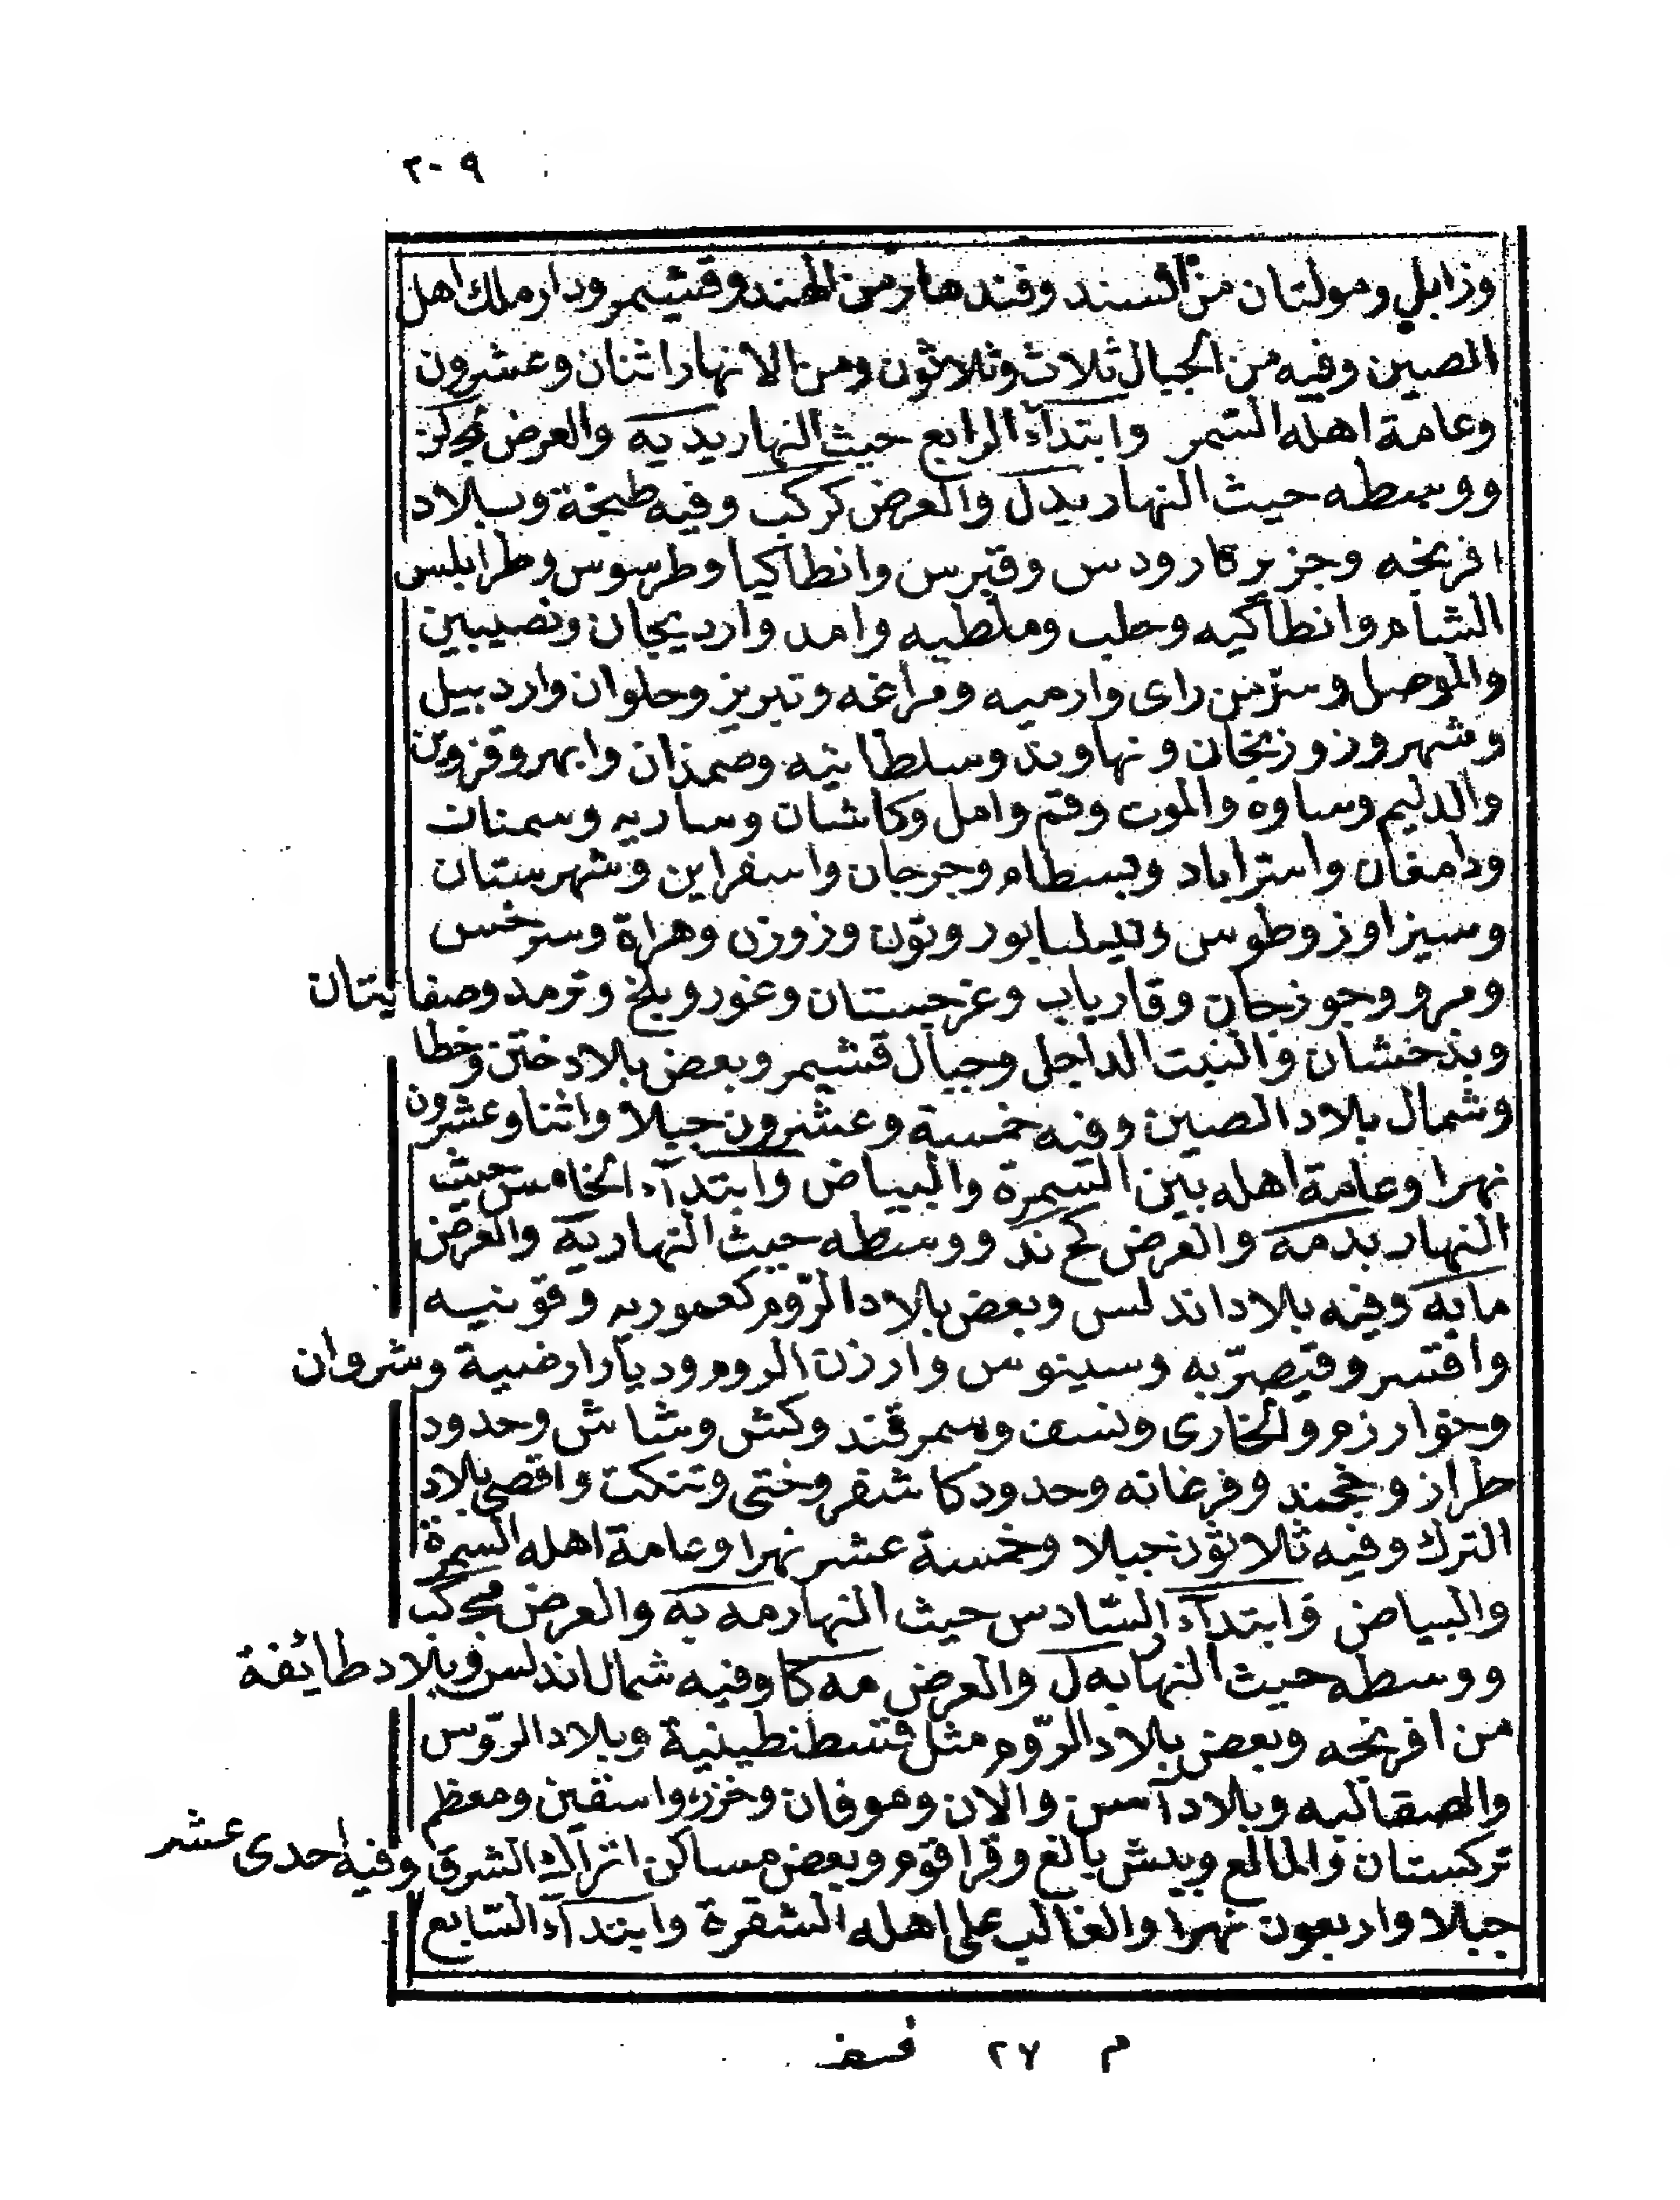 ٢٠٩
وزابلي ومولتان من السند وقندهار من الهند وقشيمر ودار ملك اهل
الصين وفيه من الجبال ثلاث وثلاثون ومن الانهار اثنان وعشرون
وعامة اهله السمر وابتداء الرابع حيث النهار يد يه والعرض لج لز
ووسطه حيث النهار يد ل والعرض كركب وفيه طنجة وبلاد
افرنجه وجزيرة رودس وقبرس وانطاكيا وطرسوس وطرابلس
الشام وانطاكيه وحلب وملطيه وامد واردبيجان ونصيبين
والموصل وسرمن راى وارميه ومراغه وتبريز وحلوان واردبيل
وشهروز وزنجان ونهاوند وسلطانيه وهمذان وابهر وقزوين
والديلم وساوه والموت وقم وامل وكاشان وساريه وسمنان
ودامغان واستراباد وبسطام وجرجان واسفراين وشهرستان
وسبزاوز وطوس ونيسابور وتون وزوزن وهراة وسرخس
ومرو وجوزجان وقارياب وغرجستان وغور وبلخ وترمد وصفانيتان
وبذخشان والتبت الداخل وجبال قشيمر وبعض بلاد ختن وخطا
وشمال بلاد الصين وفيه خمسة وعشرون جبلا واثنا وعشرون
نهرا وعامة اهله بين السمرة والبياض وابتداء الخامس حيث
النهار يد مه والعرض لح ند ووسطه حيث النهار يه والعرض
ما يه وفيه بلاد اندلس وبعض بلاد الروم كعموريه وقونيه
واقسر وقيصريه وسينوس وارزن الروم وديار ارضية وشروان
وخوارزم والخارى ونسف وسمرقند وكش وشاش وحدود
طراز وخجند وفرغانه وحدود كاشغر وختى وتنكت واقصى بلاد
الترك وفيه ثلاثون جبلا وخمسة عشر نهرا وعامة اهله السمرة
والبياض وابتداء السادس حيث النهار مه يه والعرض مج كب
ووسطه حيث النها يه ل والعرض مه كا وفيه شمال اندلس وبلاد طائفة
من افرنجه وبعض بلاد الروم مثل قسطنطينية وبلاد الروس
والصقالبه وبلاد آسن والان وموفان وخزر واسقين ومعظم
تركستان والمالع وبيش بالغ وقراقوم وبعض مساكن اتراك الشرق وفيه احدى عشر
جبلا واربعون نهرا والغالب على اهله الشقرة وابتداء السابع
م ٢٧